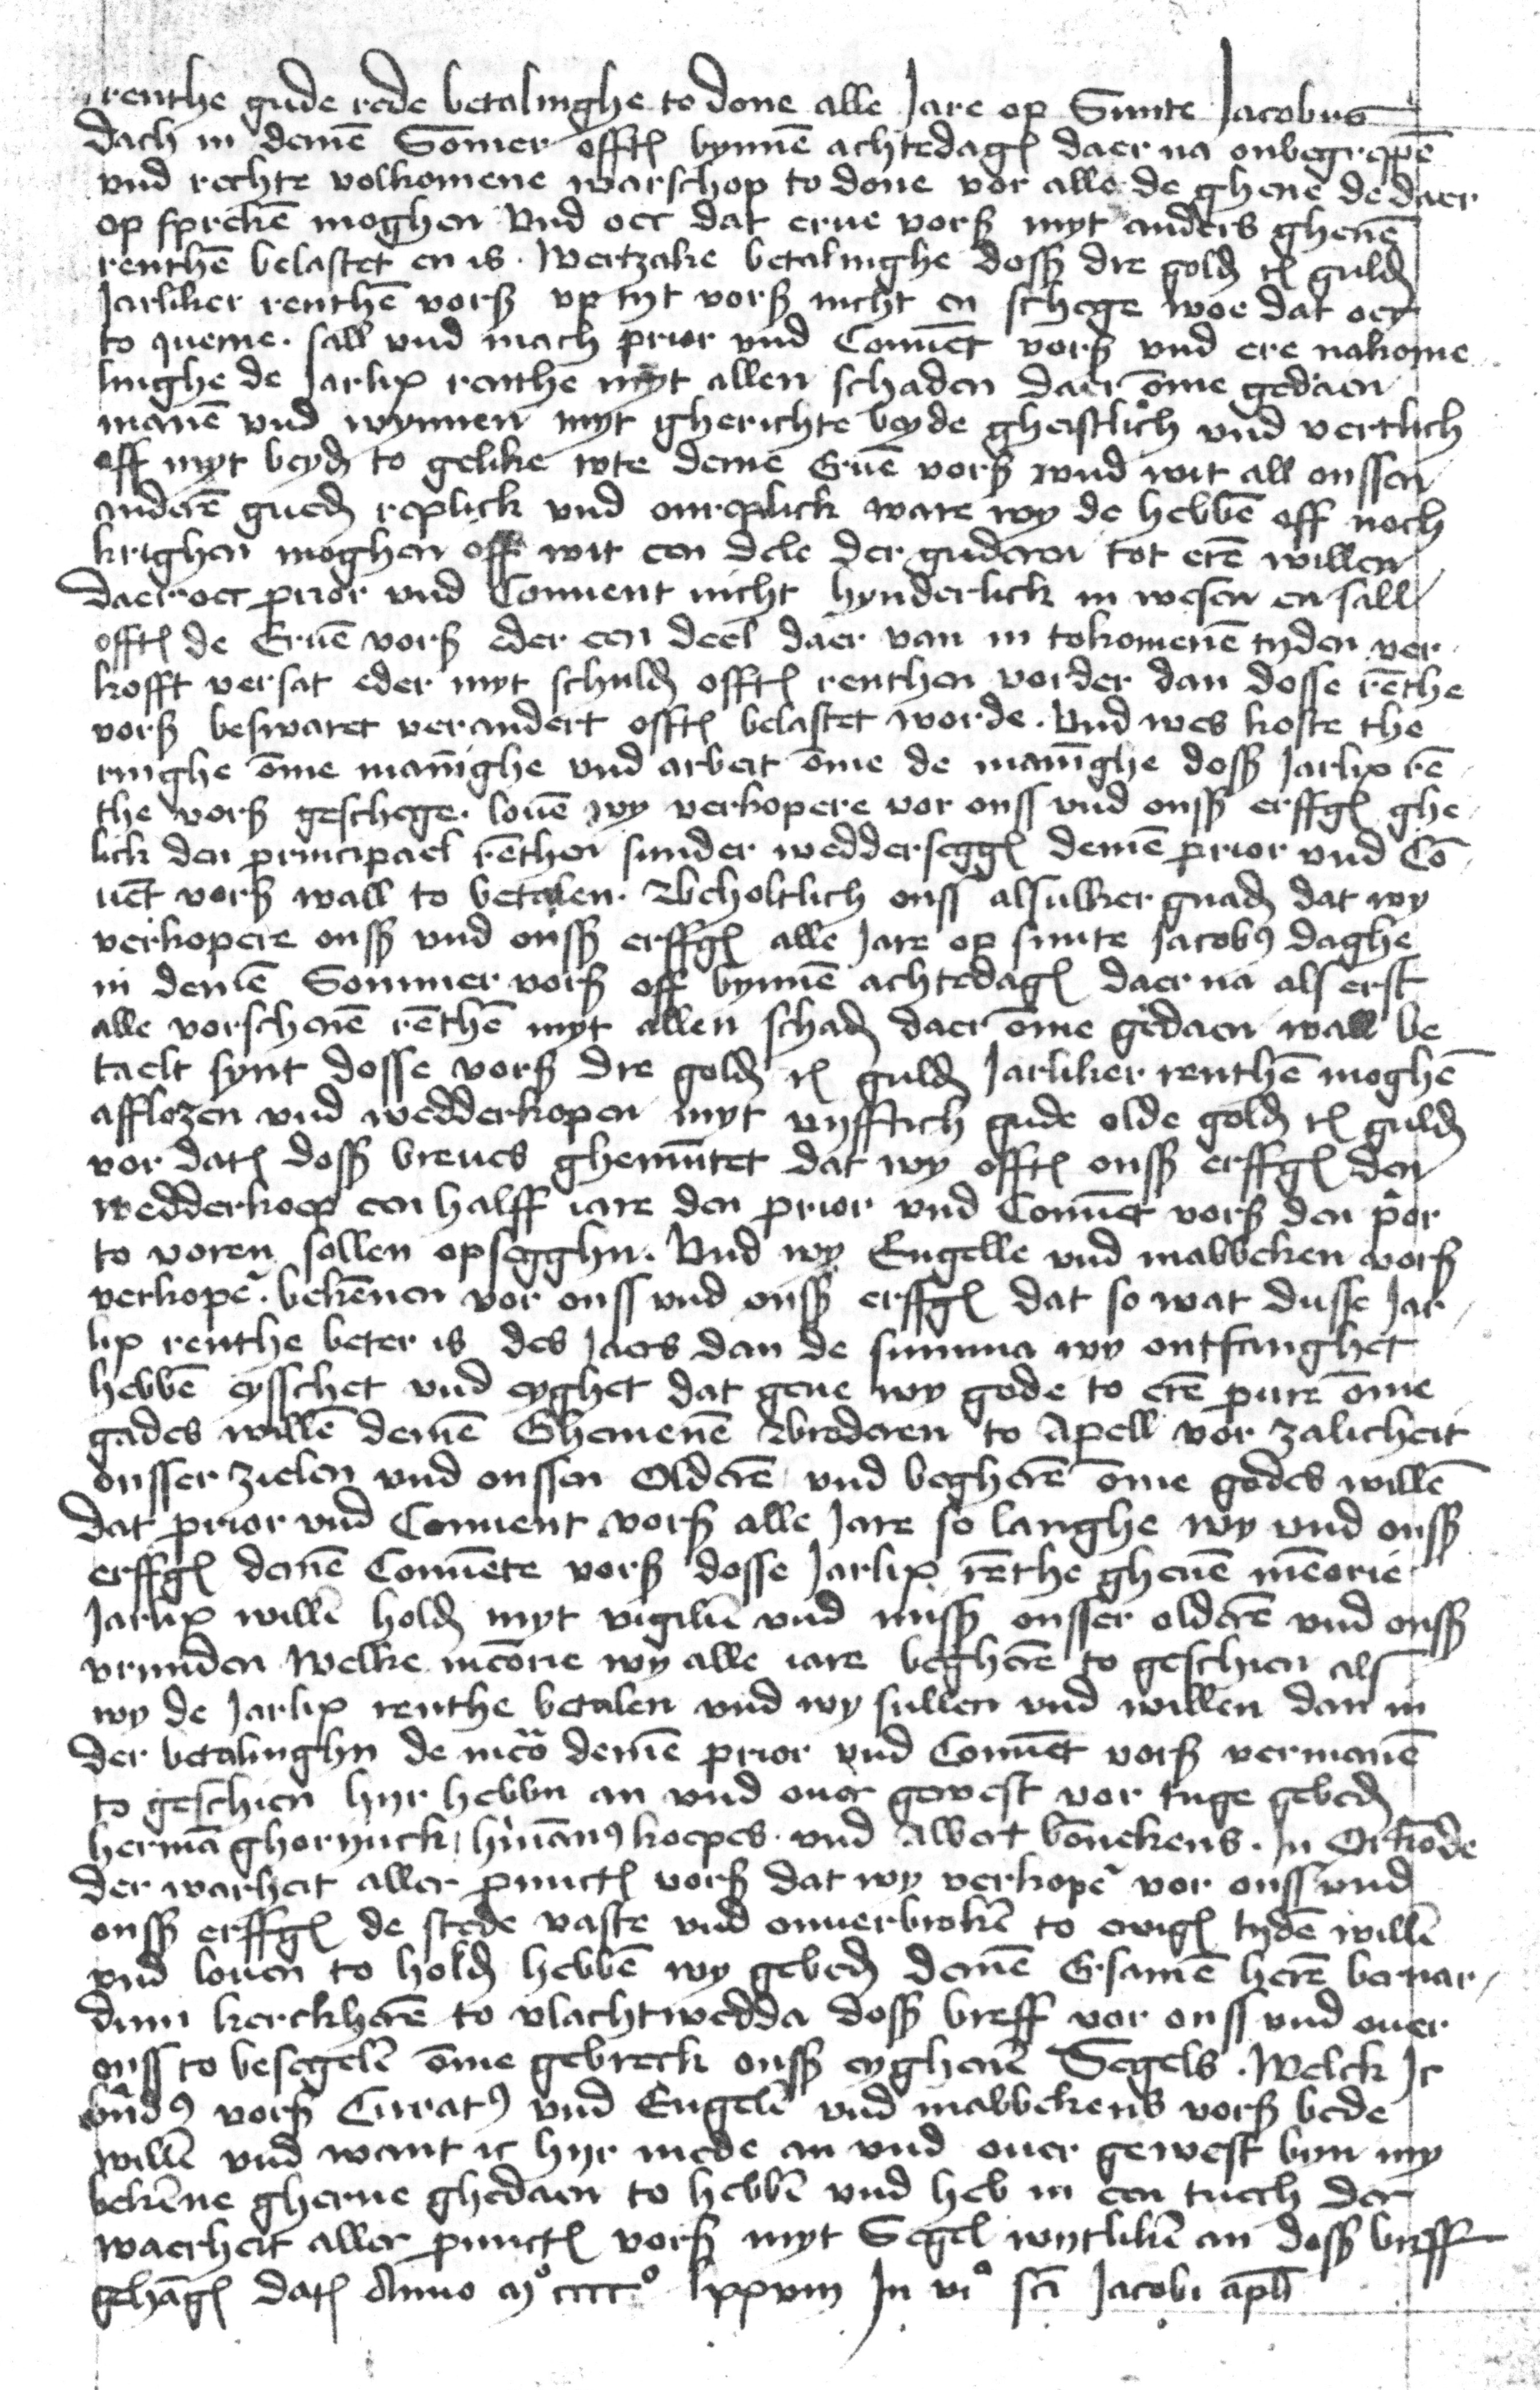 renthe gude rede betalinghe to done alle Jare op Sunte Jacobus
dach in demē Somer offtꝭ bynnē achtedagꝭ daer na onbegrepē
vnd rechte volkomene warschop to done vor alle de ghene de daer
op sprekē moghen Vnd oec dat erue vorß myt anders ghenē
renthē belastet en is. Wertzake betalinghe dosß dre goldꝭ rꝭ guldꝭ
Jarliker renthē vorß vp tyt vorß nicht en schege woe dat oeck
to queme. sall vnd mach prior vnd Conuēt vorß vnd ere nakome
linghe de Jarlix renthe myt allen schaden daer ōme gedaen
manē vnd wynnen myt gherichte beyde gheistlich vnd vertlich
off myt beydꝭ to gelike wte deme Eruē vorß vnd wit all onssen
anderē guedꝭ replick vnd onreplick ware wy de hebbē off noch
krighen moghen off wit een dele der guderen tot erē willen
daer oec prior vnd Conuent nicht hynderlick in wesen en sall
offtꝭ de Eruē vorß eder een deel daer van in tokomenē tyden ver
kofft versat eder myt schuldꝭ offtꝭ renthen vorder dan dosse rēthe
vorß beswaret verandert offtꝭ belastet worde. Vnd wes koste the
ringhe ōme manīghe vnd arbeit ōme de manīghe dosß Jarlix rē
the vorß geschege. louē wy verkopere vor onss vnd onsß erffgꝭ ghe
lick den principael rēthen sunder wedderseggꝭ demē prior vnd Cō
uēt vorß wall to betalen. Beholtlich onss alsulker gnadꝭ dat wy
verkopere onsß vnd onsß erffgꝭ alle Jare op sunte Jacobꝰ daghe
in demē Sommer vorß off bynnē achtedagꝭ daer na als erst
alle vorschenē rēthē myt allen schadꝭ daer ōme gedaen wall be
taelt synt dosse vorß dre goldꝭ rꝭ guldꝭ Jarliker renthē moghē
afflozen vnd wedderkopen myt vyfftich gude olde goldꝭ rꝭ guldꝭ
vor datꝭ dosß breues ghemūtet dat wy offtꝭ onsß erffgꝭ den
wedderkoep een halff iare den prior vnd Conuēt vorß den pͥor
to voren sollen opsegghn. Vnd wy Engelle vnd mabbeken vorß
verkopeꝛ bekēnen vor onss vnd onsß erffgꝭ dat so wat dusse Jar
lix renthe beter is des Jaers dan de summa wy ontfanghet
hebbē eysschet vnd eyghet dat geue wy gode to erē pure ōme
gades willē demē Ghemenē Broderen to Apell vor zalicheit
onsser zielen vnd onssen Olderē vnd begherē ōme godes willē
dat prior vnd Conuent vorß alle Jare so langhe wy vnd onsß
erffgꝭ demē Conuēte vorß dosse Jarlix rēthe gheuē mēorie
Jarlix willē holdꝭ myt vigiliē vnd missß onsser olderē vnd onsß
vrunden Welke mēorie wy alle iare begherē to geschien als
wy de Jarlix renthe betalen vnd wy sullen vnd willen dan in
der betalinghn de mēo demē prior vnd Conuēt vorß vermanē
to geschien hyr hebbn an vnd ouer gewest vor tuge gebedꝭ
hermā ghorynck, hͥmānꝰ koepes. vnd Albert bōnekens. In Orkōde
der warheit aller punctꝭ vorß dat wy verkopeꝛ vor onss vnd
onsß erffgꝭ de stede vaste vnd onuerbrokē to ewigꝭ tydē willē
vnd louen to holdꝭ hebbē wy gebedꝭ demē Ersamē herē bernar
dum kerckherē to vlachtwedda dosß breff vor onss vnd ouer
onss to besegelē ōme gebreck onsß eyghenē Segels. Welck Ic
bn̄dꝰ vorß Curatꝰ vnd Engelē vnd mabbekens vorß bede
willē vnd want ic hyr mede an vnd ouer gewest byn my
bekēne gherne ghedaen to hebbē vnd heb in een tuech der
waerheit aller punctꝭ vorß myt Segel wytlikē an dosß breff
gehāgꝭ datꝭ Anno mͦ ccccͦ lxxviii In viᵃ sc̄i Jacobi apl̄i